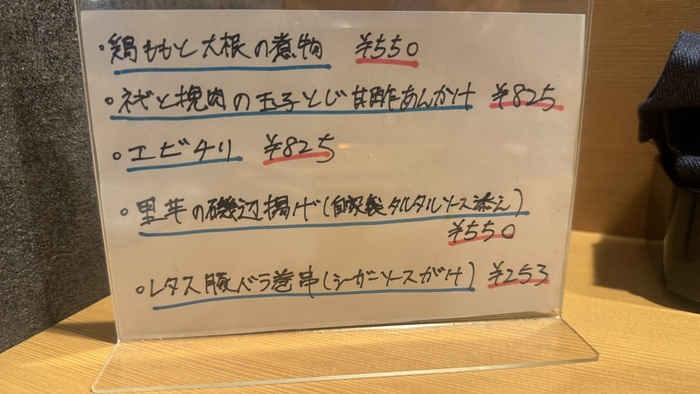 ・鶏ももと大根の煮物 ¥550
・ネギと挽肉の玉子とじ甘酢あんかけ ¥825
・エビチリ ¥825
・里芋の磯辺揚げ(自家製タルタルソース添え)
¥550
・レタス豚バラ巻串(シーザーソースがけ) ¥253